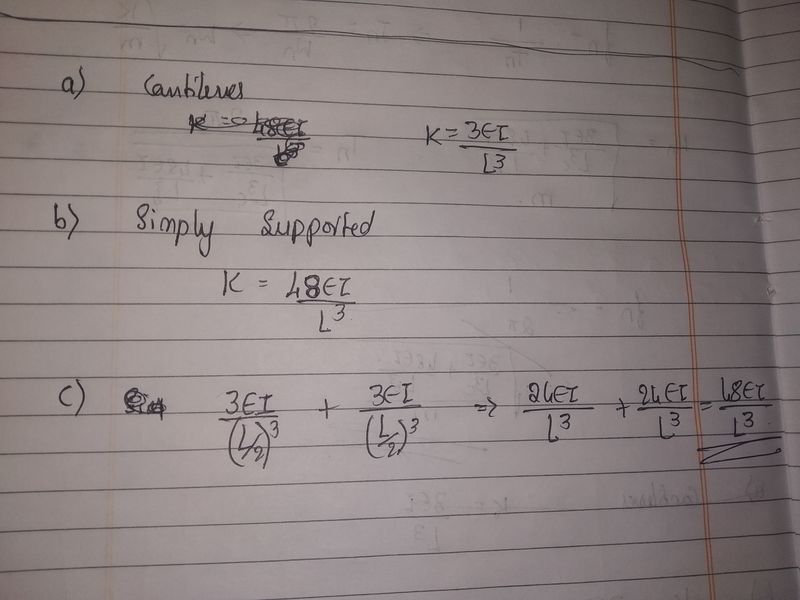 a) Cantilever
K = 48EI / L³ K = 3EI / L³
b) Simply Supported
K = 48EI / L³
c) 3EI / (L/2)³ + 3EI / (L/2)³ => 24EI / L³ + 24EI / L³ = 48EI / L³